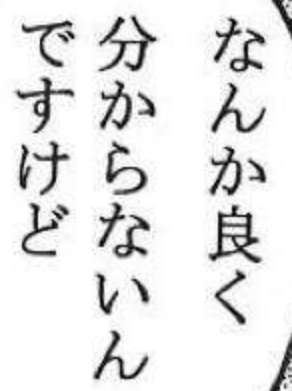 なんか良く
分からないん
ですけど